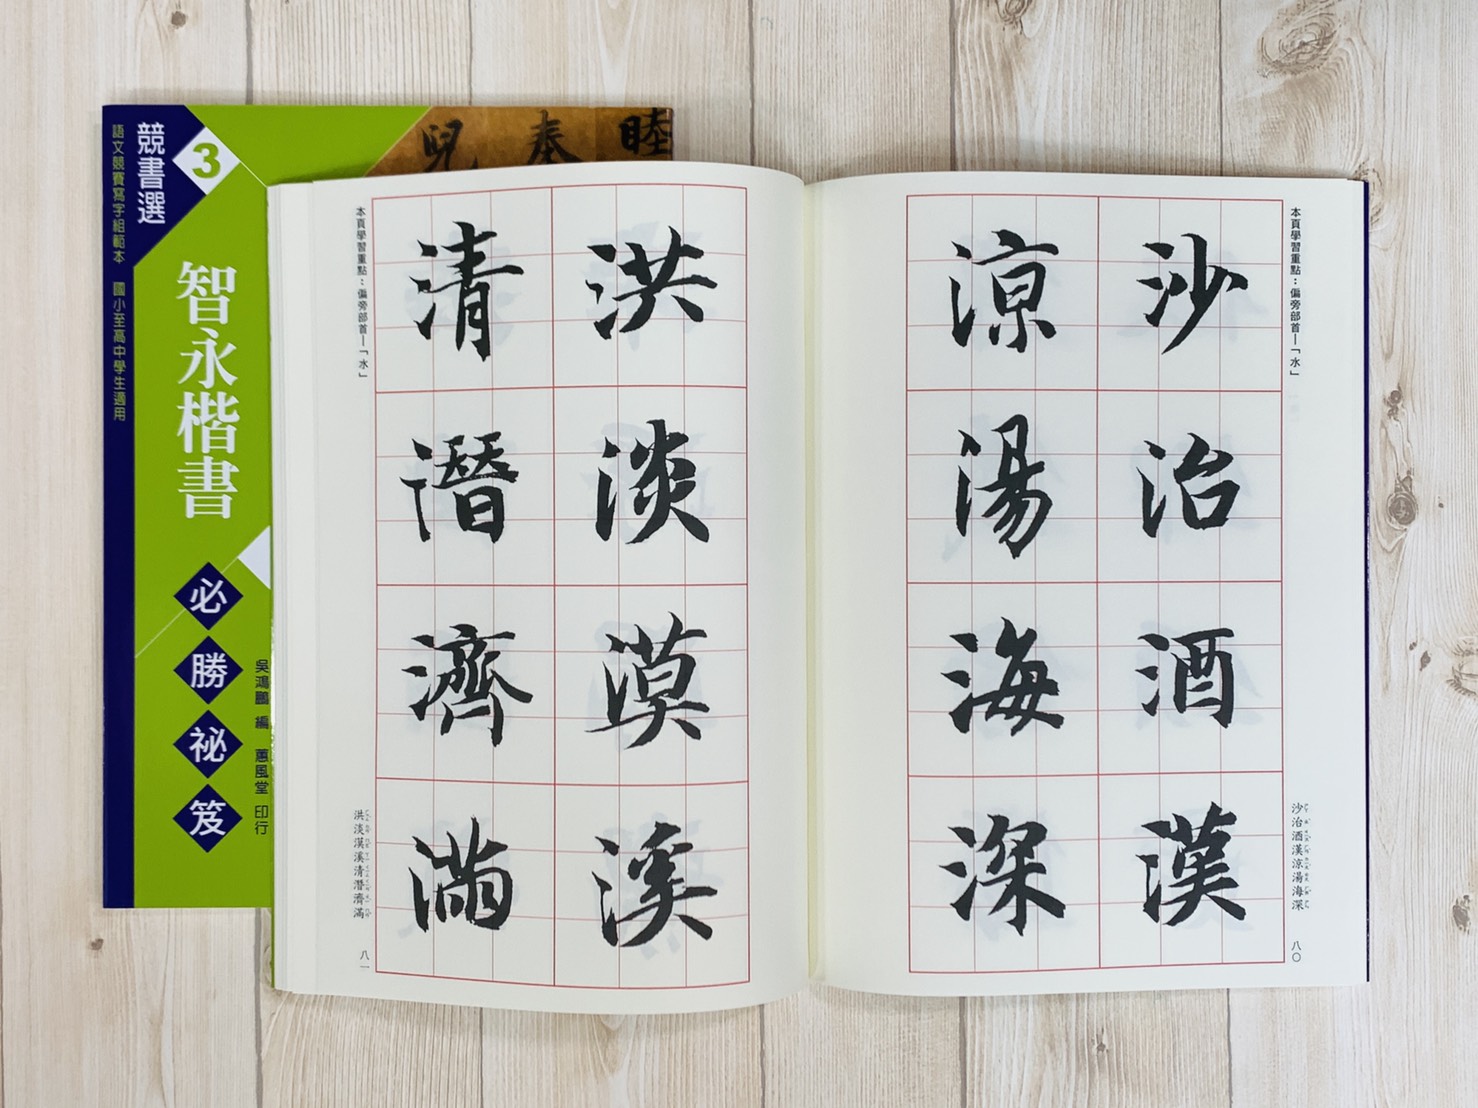 睦
奉
兒
3
競書選
語文競賽寫字組範本　國小至高中學生適用
智永楷書
必勝祕笈
吳鴻鵬 編　蕙風堂 印行
本頁學習重點：偏旁部首—「水」
沙治酒漢
涼湯海深
沙治酒漢涼湯海深
八〇
洪淡漠溪
清潛濟滿
本頁學習重點：偏旁部首—「水」
洪淡漠溪清潛濟滿
八一